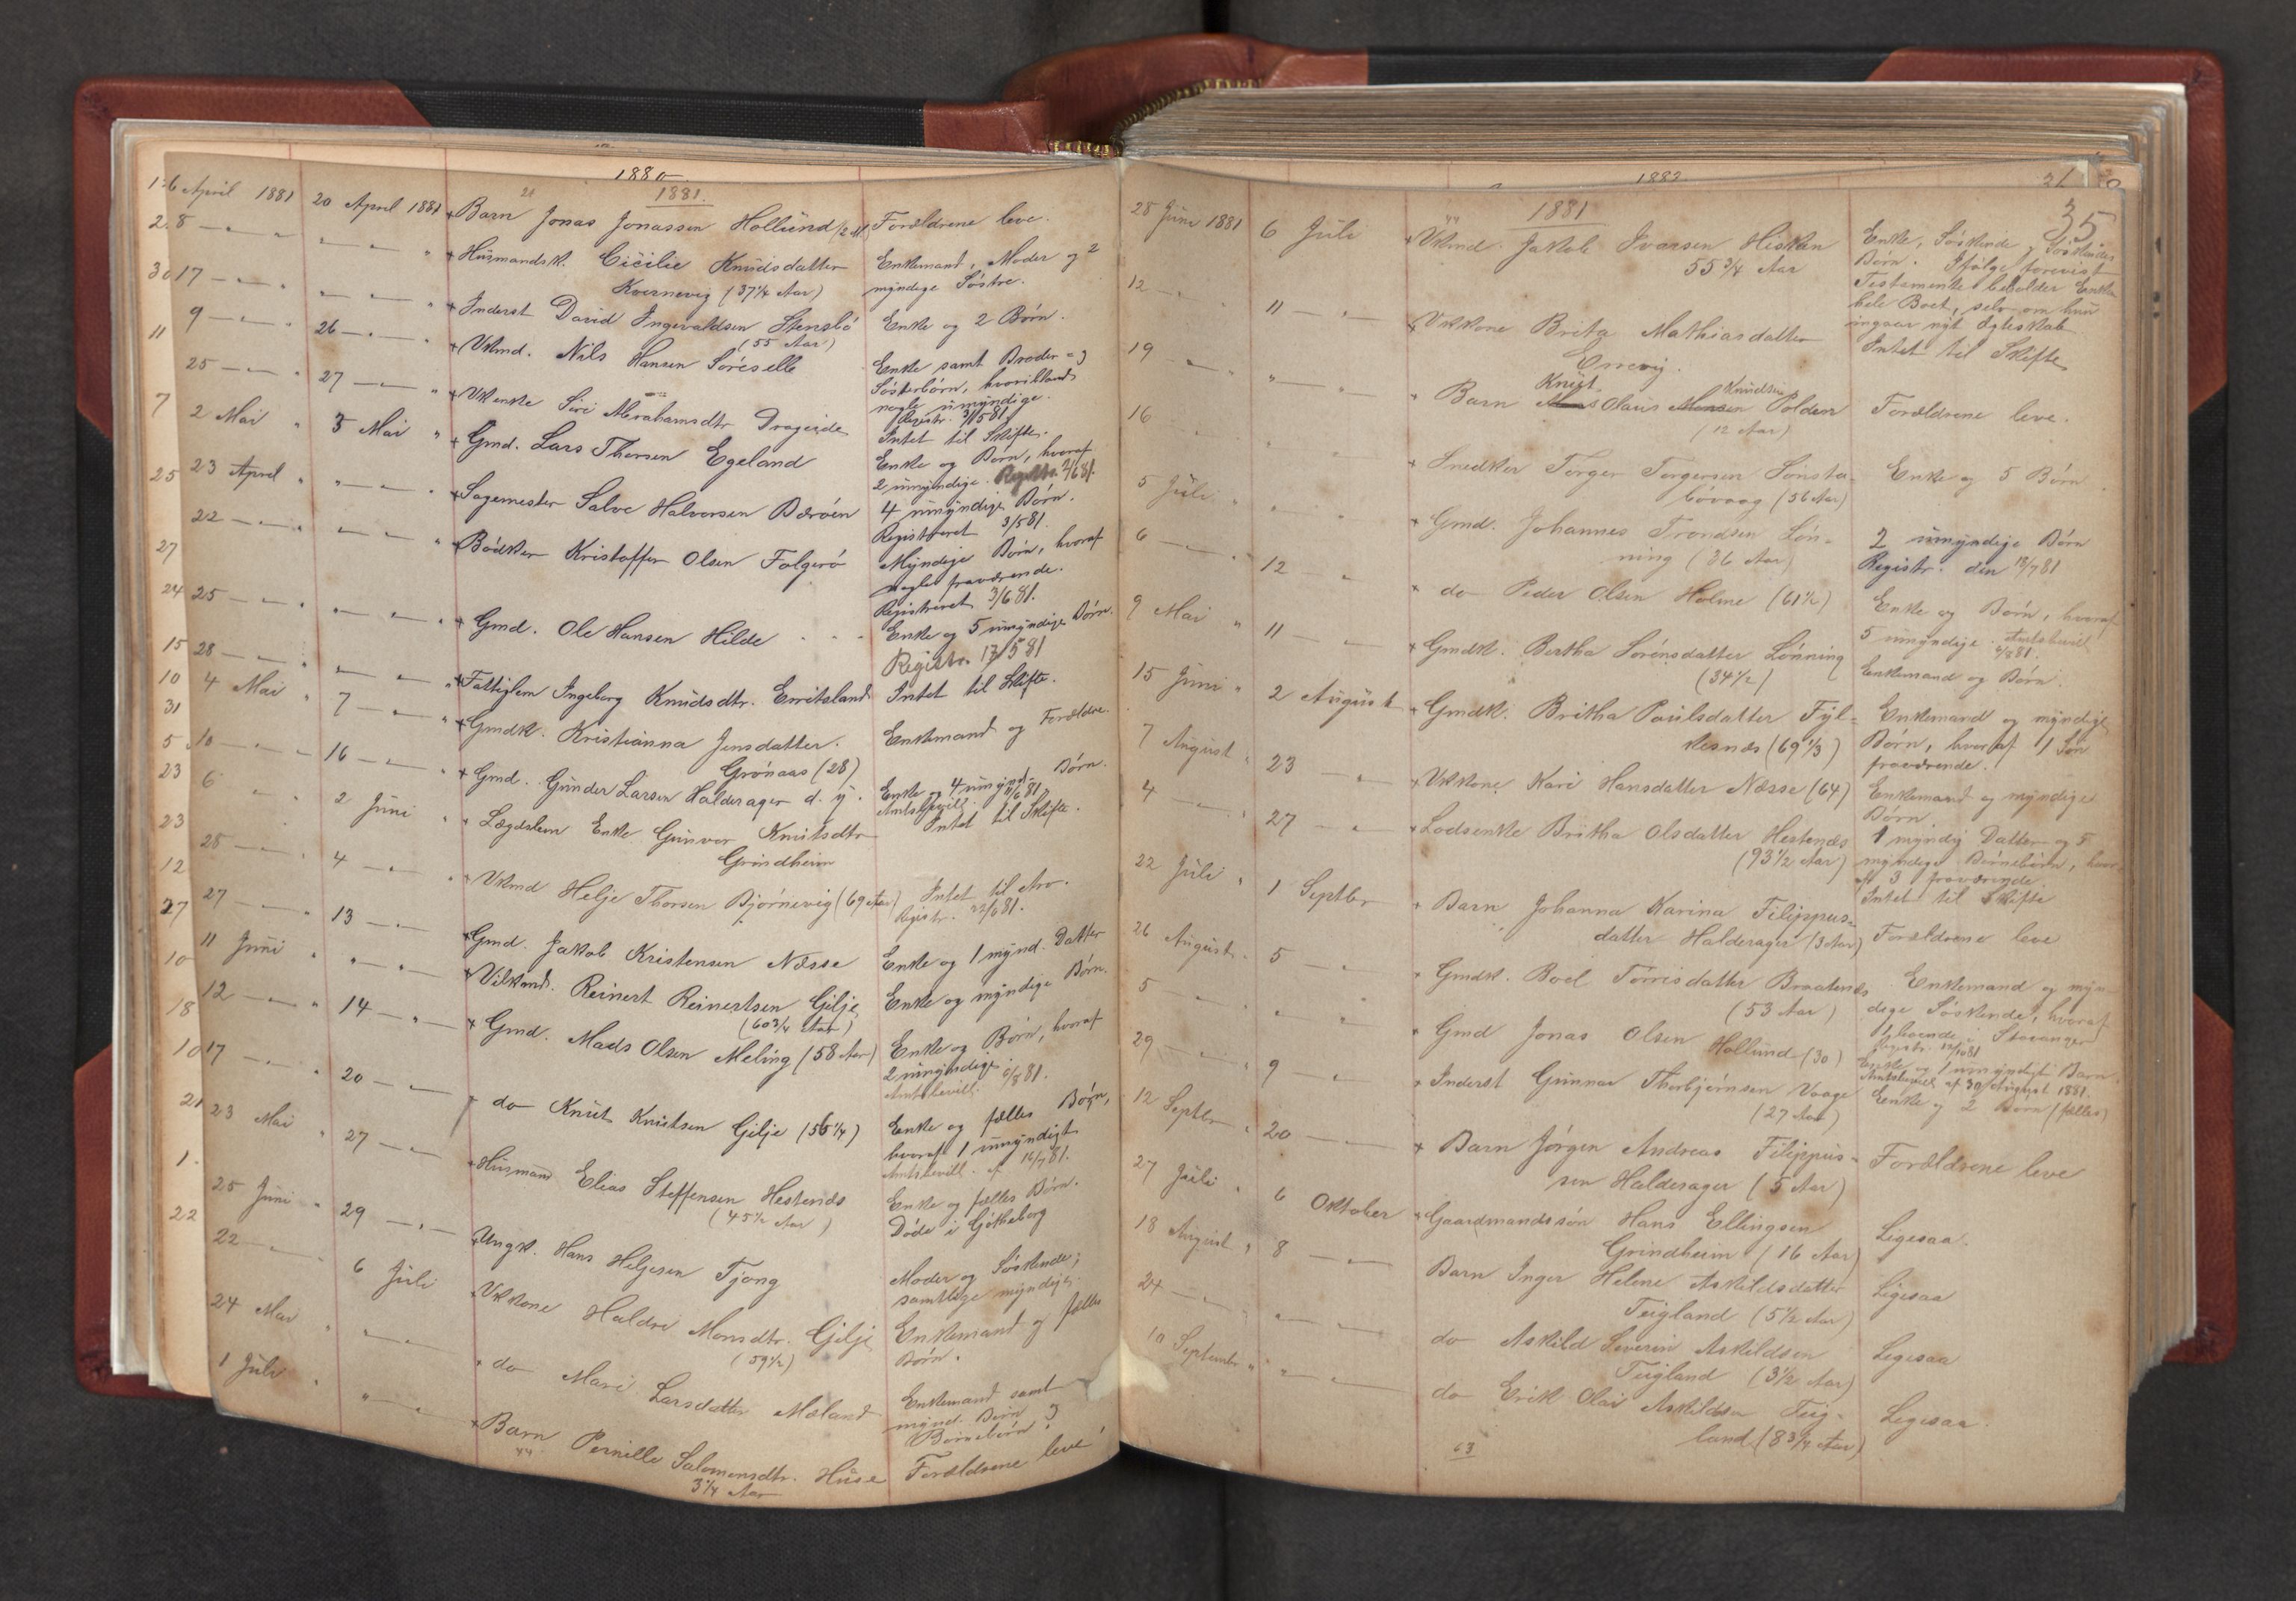 1880
1881.
6 April 1881 20 April 1881 Barn Jonas Jonassen Hollund Forældrene leve.
8 — " — " Husmandsk. Cicilie Knudsdatter Enkemand, Moder og 2
Kvernevig (37 1/4 Aar) myndige Søstre.
17 — " — " Inderst David Ingevaldsen Stensbø Enke og 2 Børn.
(55 Aar)
9 — " 26 — " Vkmd. Nils Hansen Søreselle Enke samt Broder- og
Søsterbørn, hvoriblandt
nogle umyndige.
25 — " 27 — " Vkenke Siri Abrahamsdtr Drageide Intet til Skifte.
2 Mai " 3 Mai " Gmd. Lars Thorsen Egeland Enke og Børn, hvoraf
2 umyndige. Registr. 2/6 81.
23 April " — " Sagemester Salve Halvorsen Børøen 4 umyndige Børn.
Registreret 3/5 81.
22 — " — " Bødker Kristoffer Olsen Folgerø Myndige Børn, hvoraf
nogle fraværende.
Registreret 3/6 81.
25 — " — " Gmd. Ole Hansen Hilde Enke og 5 umyndige Børn.
Registr. 17/5 81
28 — " — " Fattiglem Ingeborg Knudsdtr. Emitsland Intet til Skifte.
4 Mai " 7 — " Gmdk. Kristianna Jensdatter. Enkemand og Forældre
Grønaas (28)
10 — " 16 — " Gmd. Gunder Larsen Halderager d. y. Enke og 4 umynd. Børn.
Amtsbevill.
6 " 2 Juni " Lægdslem Enke Gunvor Knutsdtr Intet til Skifte.
Grindheim
28 — " 4 — " Vkmd Helje Thorsen Bjørnevig (69 Aar) Intet til Arv.
Registr. 22/6 81.
27 — " 13 — " Gmd. Jakob Kristensen Næsse Enke og 1 mynd. Datter
11 Juni " " — " Vilkmd. Reinert Reinertsen Gilje Enke og myndige Børn.
(60 3/4 Aar)
12 — " 14 — " Gmd. Mads Olsen Meling (58 Aar) Enke og Børn, hvoraf
2 umyndige
Amtsbevill. 6/8 81.
17 — " 20 — " do Knut Knutsen Gilje (56 1/4) Enke og fælles Børn,
hvoraf 1 umyndigt
Amtsbevill. af 16/7 81.
23 Mai " 27 — " Husmand Elias Steffensen Hestenæs Enke og fælles Børn.
(45 1/2 Aar) Døde i Gøtheborg
25 Juni " 29 — " Ungk. Hans Heljesen Tjong Moder og Søskende;
samtlige myndige.
22 — " 6 Juli Vkkone Haldri Monsdtr. Gilje Enkemand og fælles
(59 1/2) Børn.
24 Mai " — " do Mari Larsdatter Mæland Enkemand samt
mynd. Børn og
Børnebørn.
1 Juli " " — " Barn Pernille Salomonsdtr. Huse Forældrene leve
3 1/4 Aar
1882
35
1881
28 Juni 1881 6 Juli Vkmd. Jakob Ivarsen Hisken Enke, Søskende og Søskendes
55 3/4 Aar Børn. Ifølge forevist
Testamente beholder Enken
hele Boet, selv om hun
indgaar nyt Ægteskab
12 — " 11 — " Vkkone Brita Mathiasdatter Intet til Skifte
Emevig.
19 — " " — " Barn Knut Olaus Knudsen Polden Forældrene leve.
(12 Aar)
16 " " Snedker Torger Torgersen Sønsta- Enke og 5 Børn
bøvaag (56 Aar)
5 Juli " " — " Gmd. Johannes Trondsen Løn- 2 umyndige Børn
ning (36 Aar) Registr. den 18/7 81
6 — " 12 — " do Peder Olsen Holme (61 1/2) Enke og Børn, hvoraf
5 umyndige. Amtsbevill
4/8 81.
9 Mai " 11 — " Gmdk. Bertha Sørensdatter Lønning Enkemand og Børn.
(34 1/2)
15 Juni " 2 August Gmdk. Britha Poulsdatter Fyl- Enkemand og myndige
kesnæs (69 1/3) Børn, hvoraf 1 Søn
fraværende.
7 August " 23 — " Vkkone Kari Hansdatter Næsse (64) Enkemand og myndige
Børn
4 — " 27 — " Lodsenke Britha Olsdatter Hestenæs 1 myndig Datter og 5
(93 1/2 Aar) myndige Børnebørn, hvor-
af 3 fraværende.
Intet til Skifte
22 Juli " 1 Septbr Barn Johanna Karina Filippus-
datter Halderager (3 Aar) Forældrene leve
26 August " 5 — " Gmdk. Boel Tørrisdatter Braatenæs Enkemand og myn-
(53 Aar) dige Søskende, hvoraf
1 boende i Stavanger
Registr. 12/10 81
5 — " " — " Gmd Jonas Olsen Hollund (30) Enke og 1 umyndigt Barn.
Amtsbevill af 30 August 1881.
29 — " 9 — " Inderst Gunnar Thorbjørnsen Vaage Enke og 2 Børn (fælles)
(27 Aar)
12 Septbr " 20 — Barn Jørgen Andreas Filippus- Forældrene leve
sen Halderager (5 Aar)
27 Juli " 6 Oktober Gaardmandssøn Hans Ellingsen Ligesaa.
Grindheim (16 Aar)
18 August " 8 — " Barn Inger Helene Askildsdatter Ligesaa
Teigland (5 1/2 Aar)
24 — " " — do Askild Severin Askildsen Ligesaa
Teigland (3 1/2 Aar)
10 Septembr " " — do Erik Olai Askildsen Teig- Ligesaa.
land (8 3/4 Aar)
63